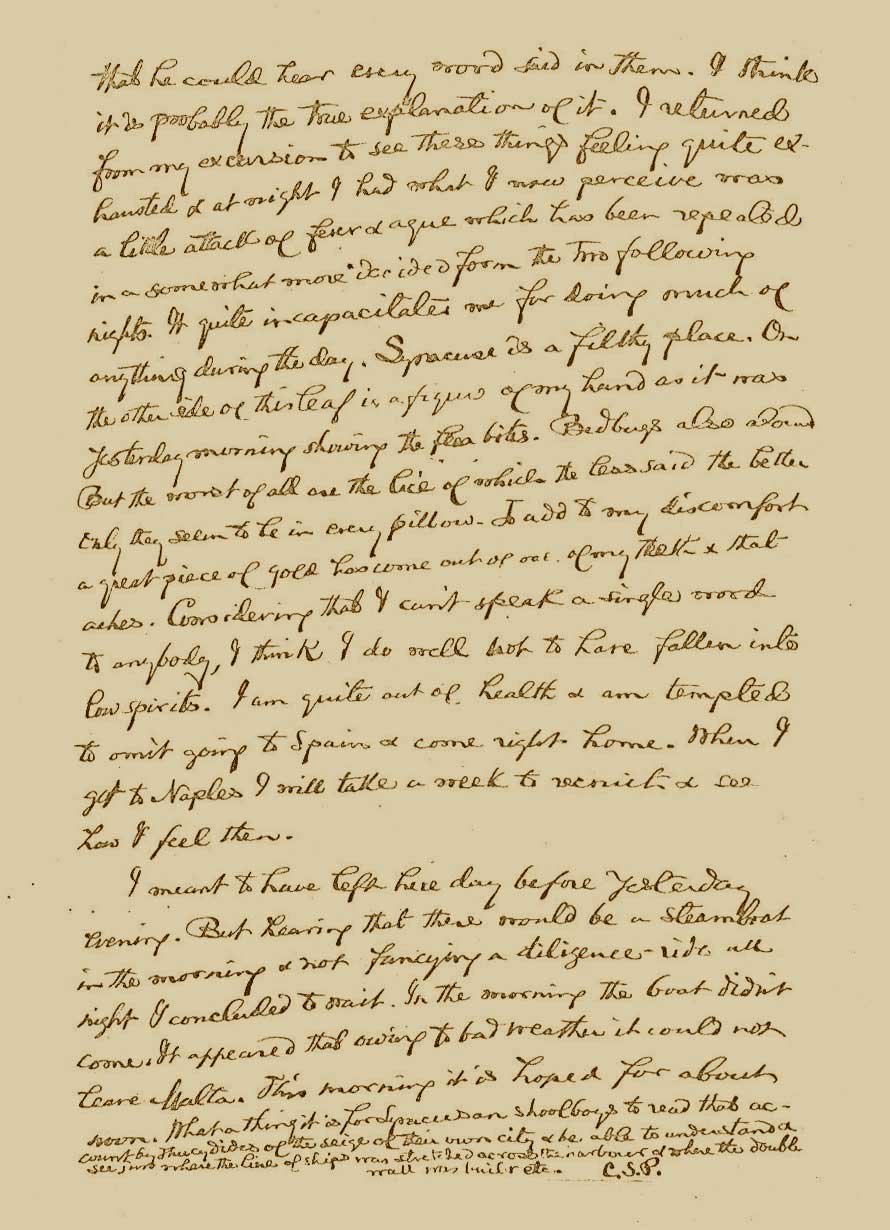 that he could hear every word said in them. I think
it is probably the true explanation of it. I returned
from my excursion to see these things feeling quite ex-
hausted & at night I had what I now perceive was
a little attack of fever & ague which has been repeated
in a somewhat more decided form the two following
nights. It quite incapacitates me for doing much of
anything during the day. Syracuse is a filthy place. On
the other side of this leaf is a figure of my hand as it was
yesterday morning showing the flea bites. Bedbugs also abound
But the worst of all are the lice of which the less said the better
only they seem to be in every pillow. To add to my discomfort
a great piece of gold has come out of one of my teeth & that
aches. Considering that I can't speak a single word
to anybody, I think I do well not to have fallen into
low spirits. I am quite out of health & am tempted
to omit going to Spain & come right home. When I
get to Naples I will take a week to recruit & see
how I feel then.
I meant to have left here day before yesterday
evening. But hearing that there would be a steamboat
in the morning & not fancying a diligence-ride all
night I concluded to wait. In the morning the boat didn't
come. It appeared that owing to bad weather it could not
leave Malta. This morning it is hoped for about
noon. What a thing it is for Syracusan shoolboys to read that ac-
count by Thucydides of the seige of their own city & be able to understand &
see just where the line of ships was stretched across the harbour & where the double
wall was built etc. C.S.P.